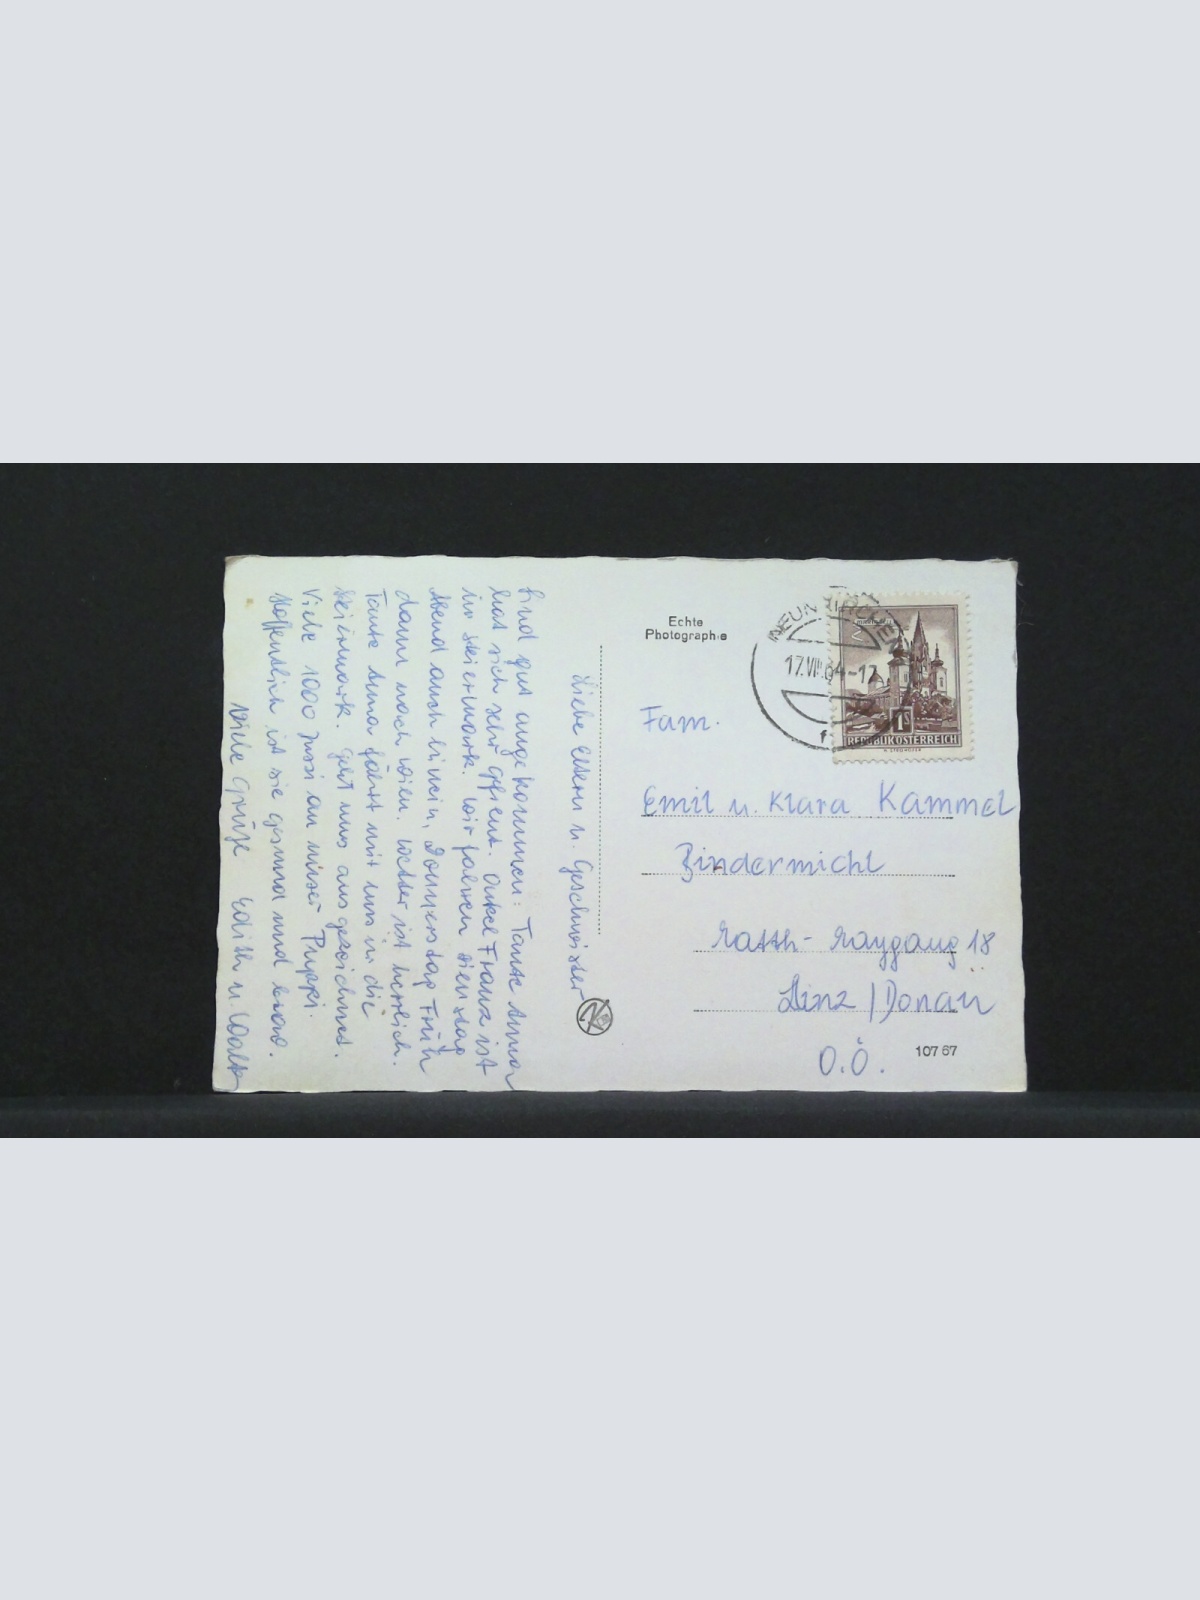 Liebe Eltern u. Geschwister
Sind gut angekommen: Tante Anna
hat sich sehr gefreut. Onkel Franz ist
in Steiermark. Wir fahren Dienstag
Abend auch hinein, Donnerstag Früh
dann nach Wien. Wetter ist herrlich.
Tante Anna fährt mit uns in die
Steiermark. Geht uns ausgezeichnet.
Viele 1000 Bussi an unser Puppi.
Hoffentlich ist sie gesund und brav.
Viele Grüße Edith u. Walter
Echte
Photographie
NEUNKIRCHEN
17.VIII.64-17
f
1S
REPUBLIK ÖSTERREICH
Fam.
Emil u. Klara Kammel
Bindermichl
Linz / Donau
O.Ö.
107 67